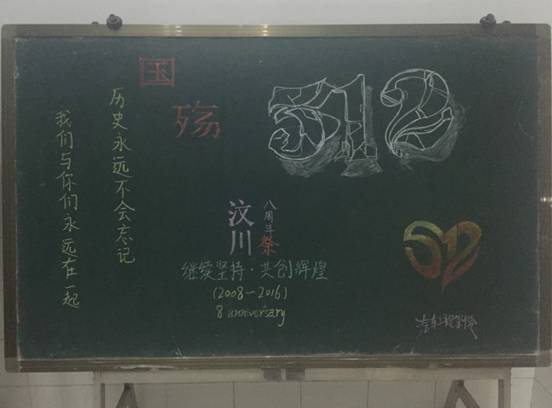 国殇
512
历史永远不会忘记
我们与你们永远在一起
汶川
八周年祭
继续坚持·共创辉煌
(2008-2016)
8 anniversary
512